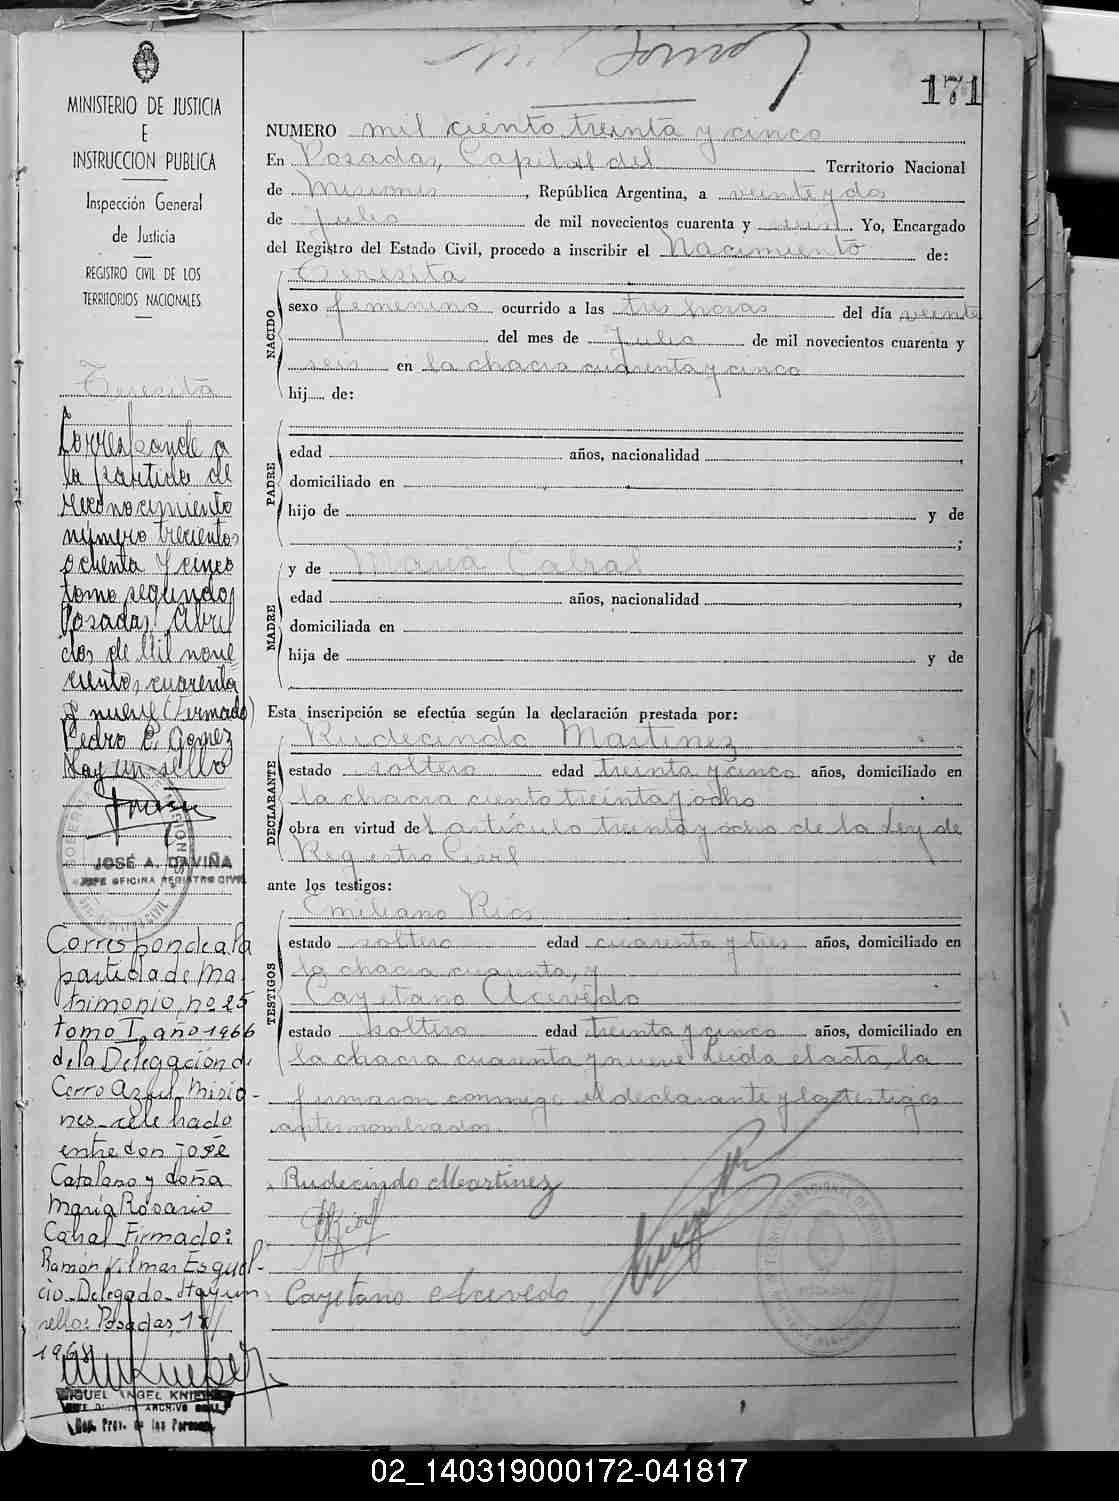 171
MINISTERIO DE JUSTICIA
E
INSTRUCCION PUBLICA
Inspección General
de Justicia
REGISTRO CIVIL DE LOS
TERRITORIOS NACIONALES
Teresita
Corresponde a
la partida de
reconocimiento
número trecientos
ochenta y cinco
tomo segundo,
Posadas, Abril
dos de Mil nove
cientos cuarenta
y nueve (Firmado)
Pedro E. Gomez
Hay un sello
JOSÉ A. DAVIÑA
JEFE OFICINA REGISTRO CIVIL
Corresponde a la
partida de Ma
trimonio, nº 25
tomo I, año 1966
de la Delegación de
Cerro Azul, Misio-
nes, celebrado
entre don José
Catalano y doña
María Rosario
Cabral Firmado:
Ramón Vilmar Esquel-
cio-Delegado-Hay un
sello: Posadas,
1968
MIGUEL ANGEL
ARCHIVO
de las Personas
NUMERO mil ciento treinta y cinco
En Posadas, Capital del Territorio Nacional
de Misiones, República Argentina, a veinte y dos
de Julio de mil novecientos cuarenta y seis. Yo, Encargado
del Registro del Estado Civil, procedo a inscribir el Nacimiento de:
NACIDO
Teresita
sexo femenino ocurrido a las tres horas del día veinte
del mes de Julio de mil novecientos cuarenta y
seis en la chacra cuarenta y cinco
hij de:
PADRE
edad años, nacionalidad ,
domiciliado en
hijo de y de
;
MADRE
y de María Cabral
edad años, nacionalidad ,
domiciliada en
hija de y de
Esta inscripción se efectúa según la declaración prestada por:
DECLARANTE
Rudecindo Martinez
estado soltero edad treinta y cinco años, domiciliado en
la chacra ciento treinta y ocho
obra en virtud del artículo treinta y ocho de la Ley de
Registro Civil
ante los testigos:
TESTIGOS
Emiliano Rios
estado soltero edad cuarenta y tres años, domiciliado en
la chacra cuarenta, y
Cayetano Acevedo
estado soltero edad treinta y cinco años, domiciliado en
la chacra cuarenta y nueve Leida el acta, la
firmaron conmigo el declarante y los testigos
antes nombrados.
Rudecindo Martinez
Cayetano Acevedo
02_140319000172-041817